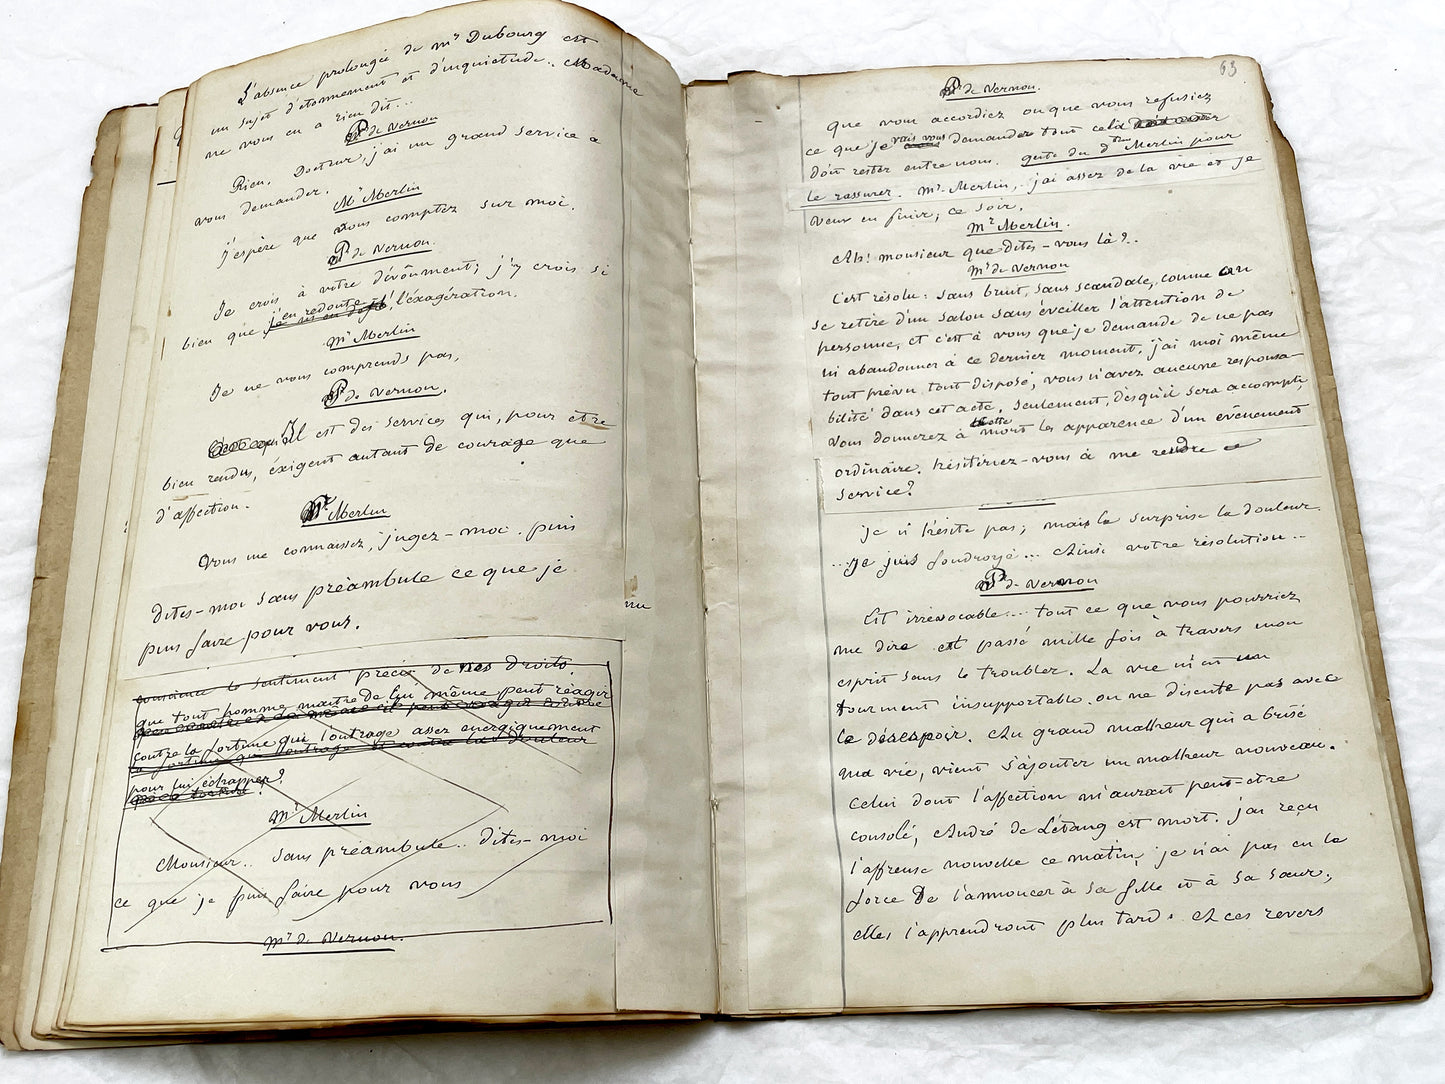 L'absence prolongée de mr Dubourg est
un sujet d'étonnement et d'inquiétude.. Madame
ne vous en a rien dit...
Pt de Vernon
Rien, Docteur, j'ai un grand service a
vous demander.
Mr Merlin
J'espère que vous comptez sur moi.
Pt de Vernon.
Je crois à votre dévoûment; j'y crois si
bien que j'en redoute l'éxagération.
Mr Merlin
Je ne vous comprends pas,
Pt de Vernon.
Il est des services qui, pour etre
bien rendus, éxigent autant de courage que
d'affection.
Mr Merlin
Vous me connaissez, jugez-moi. puis
dites-moi sans préambule ce que je
puis faire pour vous.
le sentiment précis de nos droits
que tout homme maitre de lui même peut réagir
contre la fortune qui l'outrage assez energiquement
pour lui échapper?
Mr Merlin
Monsieur.. sans préambule.. dites-moi
ce que je puis faire pour vous
Mr de Vernon.
63
Pt de Vernon.
Que vous accordiez ou que vous refusiez
ce que je vais vous demander tout cela
doit rester entre nous. geste du dteur Merlin pour
le rassurer. Mr. Merlin, j'ai assez de la vie et je
veux en finir, ce soir.
Mr Merlin.
Ah! monsieur que dites-vous là?..
Mr de Vernon
C'est résolu: sans bruit, sans scandale, comme on
se retire d'un salon sans éveiller l'attention de
personne, et c'est à vous que je demande de ne pas
m'abandonner à ce dernier moment. j'ai moi même
tout prévu tout disposé, vous n'avez aucune responsa-
bilité dans cet acte. Seulement, dès qu'il sera accompli,
vous donnerez à cette mort les apparence d'un evênement
ordinaire. hésiteriez-vous à me rendre ce
service?
Je n'hésite pas; mais la surprise la douleur
...je suis foudroyé... Ainsi votre résolution...
Pt de Vernon
Est irrévocable... tout ce que vous pourriez
me dire est passé mille fois à travers mon
esprit sans le troubler. La vie m'est un
tourment insupportable. on ne discute pas avec
le désespoir. Au grand malheur qui a brisé
ma vie, vient s'ajouter un malheur nouveau.
Celui dont l'affection m'aurait peut-etre
consolé, André de Létang est mort. j'ai reçu
l'affreuse nouvelle ce matin, je n'ai pas eu la
force De l'annoncer à sa fille et à sa sœur,
elles l'apprendront plus tard. Et ces revers
nu